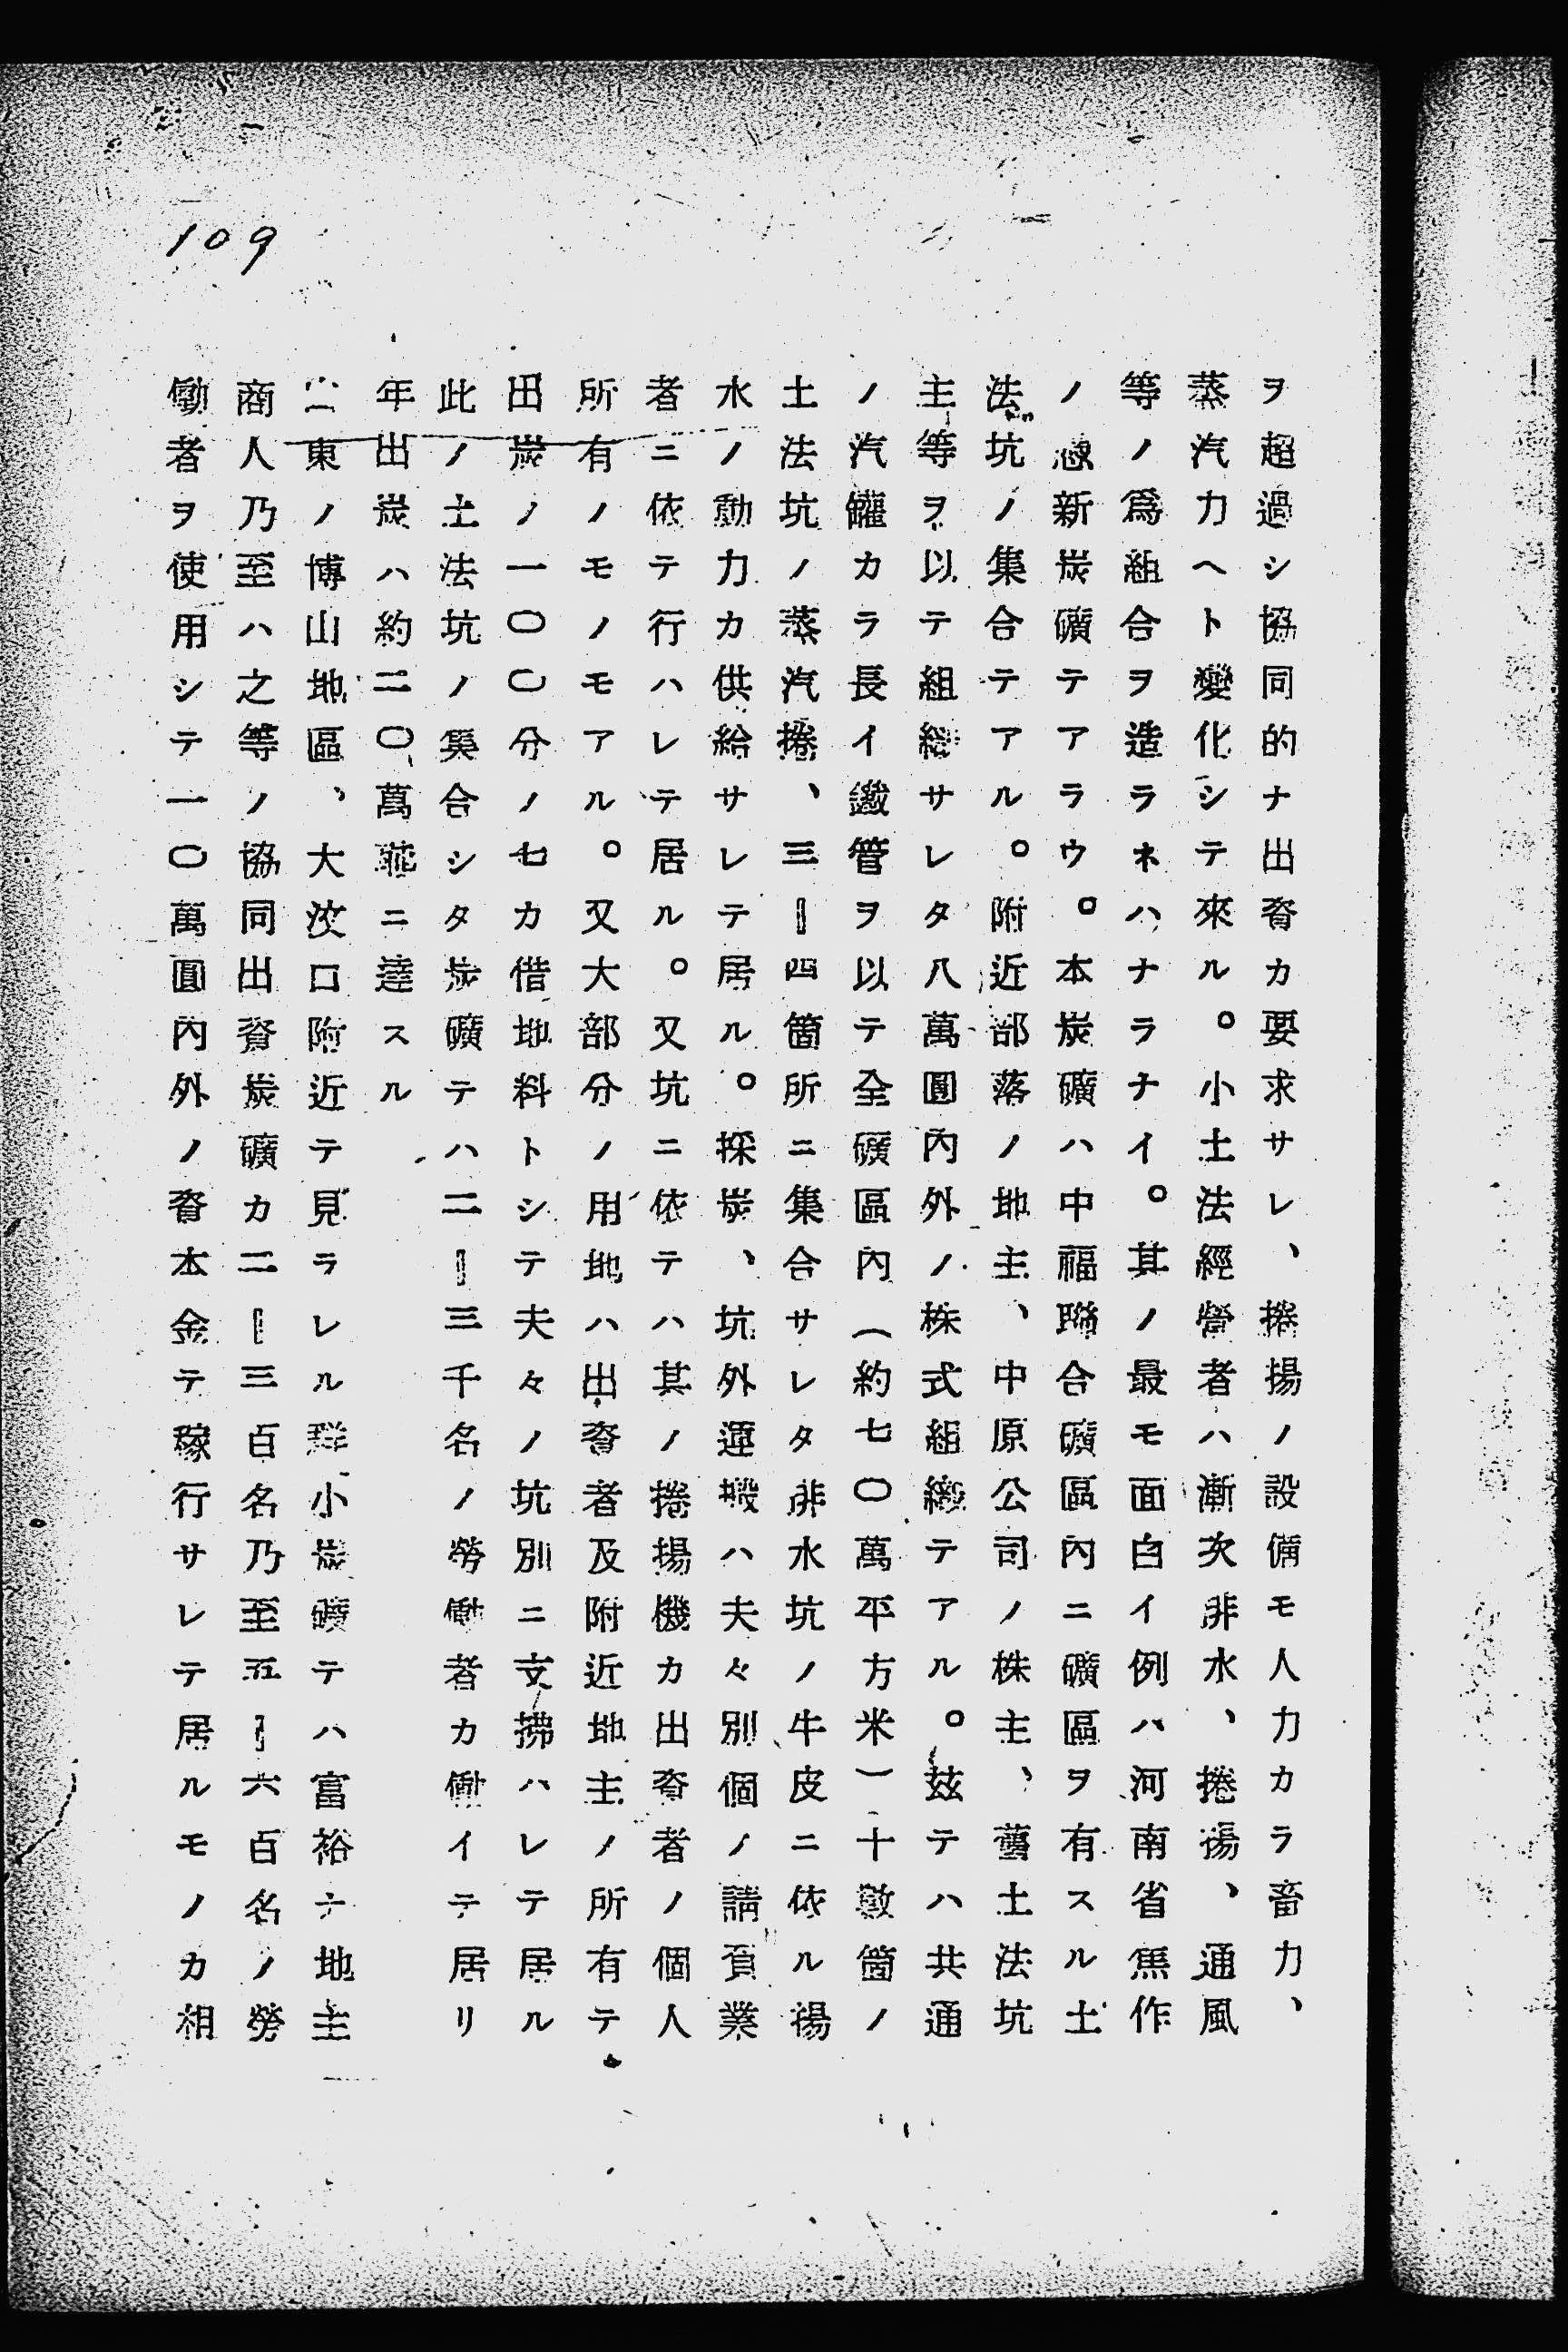 109
ヲ超過シ協同的ナ出資カ要求サレ、捲揚ノ設備モ人力カラ畜力、
蒸汽力ヘト變化シテ來ル。小土法經營者ハ漸次排水、捲揚、通風
等ノ爲組合ヲ造ラネハナラナイ。其ノ最モ面白イ例ハ河南省焦作
ノ新炭礦テアラウ。本炭礦ハ中福聯合礦區內ニ礦區ヲ有スル土
法坑ノ集合テアル。附近部落ノ地主、中原公司ノ株主、舊土法坑
主等ヲ以テ組織サレタ八萬圓內外ノ株式組織テアル。茲テハ共通
ノ汽罐カラ長イ鐵管ヲ以テ全礦區內（約七〇萬平方米）十數箇ノ
土法坑ノ蒸汽捲、三－四箇所ニ集合サレタ排水坑ノ牛皮ニ依ル揚
水ノ動力カ供給サレテ居ル。採炭、坑外運搬ハ夫々別個ノ請負業
者ニ依テ行ハレテ居ル。又坑ニ依テハ其ノ捲揚機カ出資者ノ個人
所有ノモノモアル。又大部分ノ用地ハ出資者及附近地主ノ所有テ
出炭ノ一〇〇分ノ七カ借地料トシテ夫々ノ坑別ニ支拂ハレテ居ル
此ノ土法坑ノ集合シタ炭礦テハ二－三千名ノ勞働者カ働イテ居リ
年出炭ハ約二〇萬瓲ニ達スル
山東ノ博山地區、大汶口附近テ見ラレル群小炭礦テハ富裕ナ地主
商人乃至ハ之等ノ協同出資炭礦カ二－三百名乃至五－六百名ノ勞
働者ヲ使用シテ一〇萬圓內外ノ資本金テ稼行サレテ居ルモノカ相